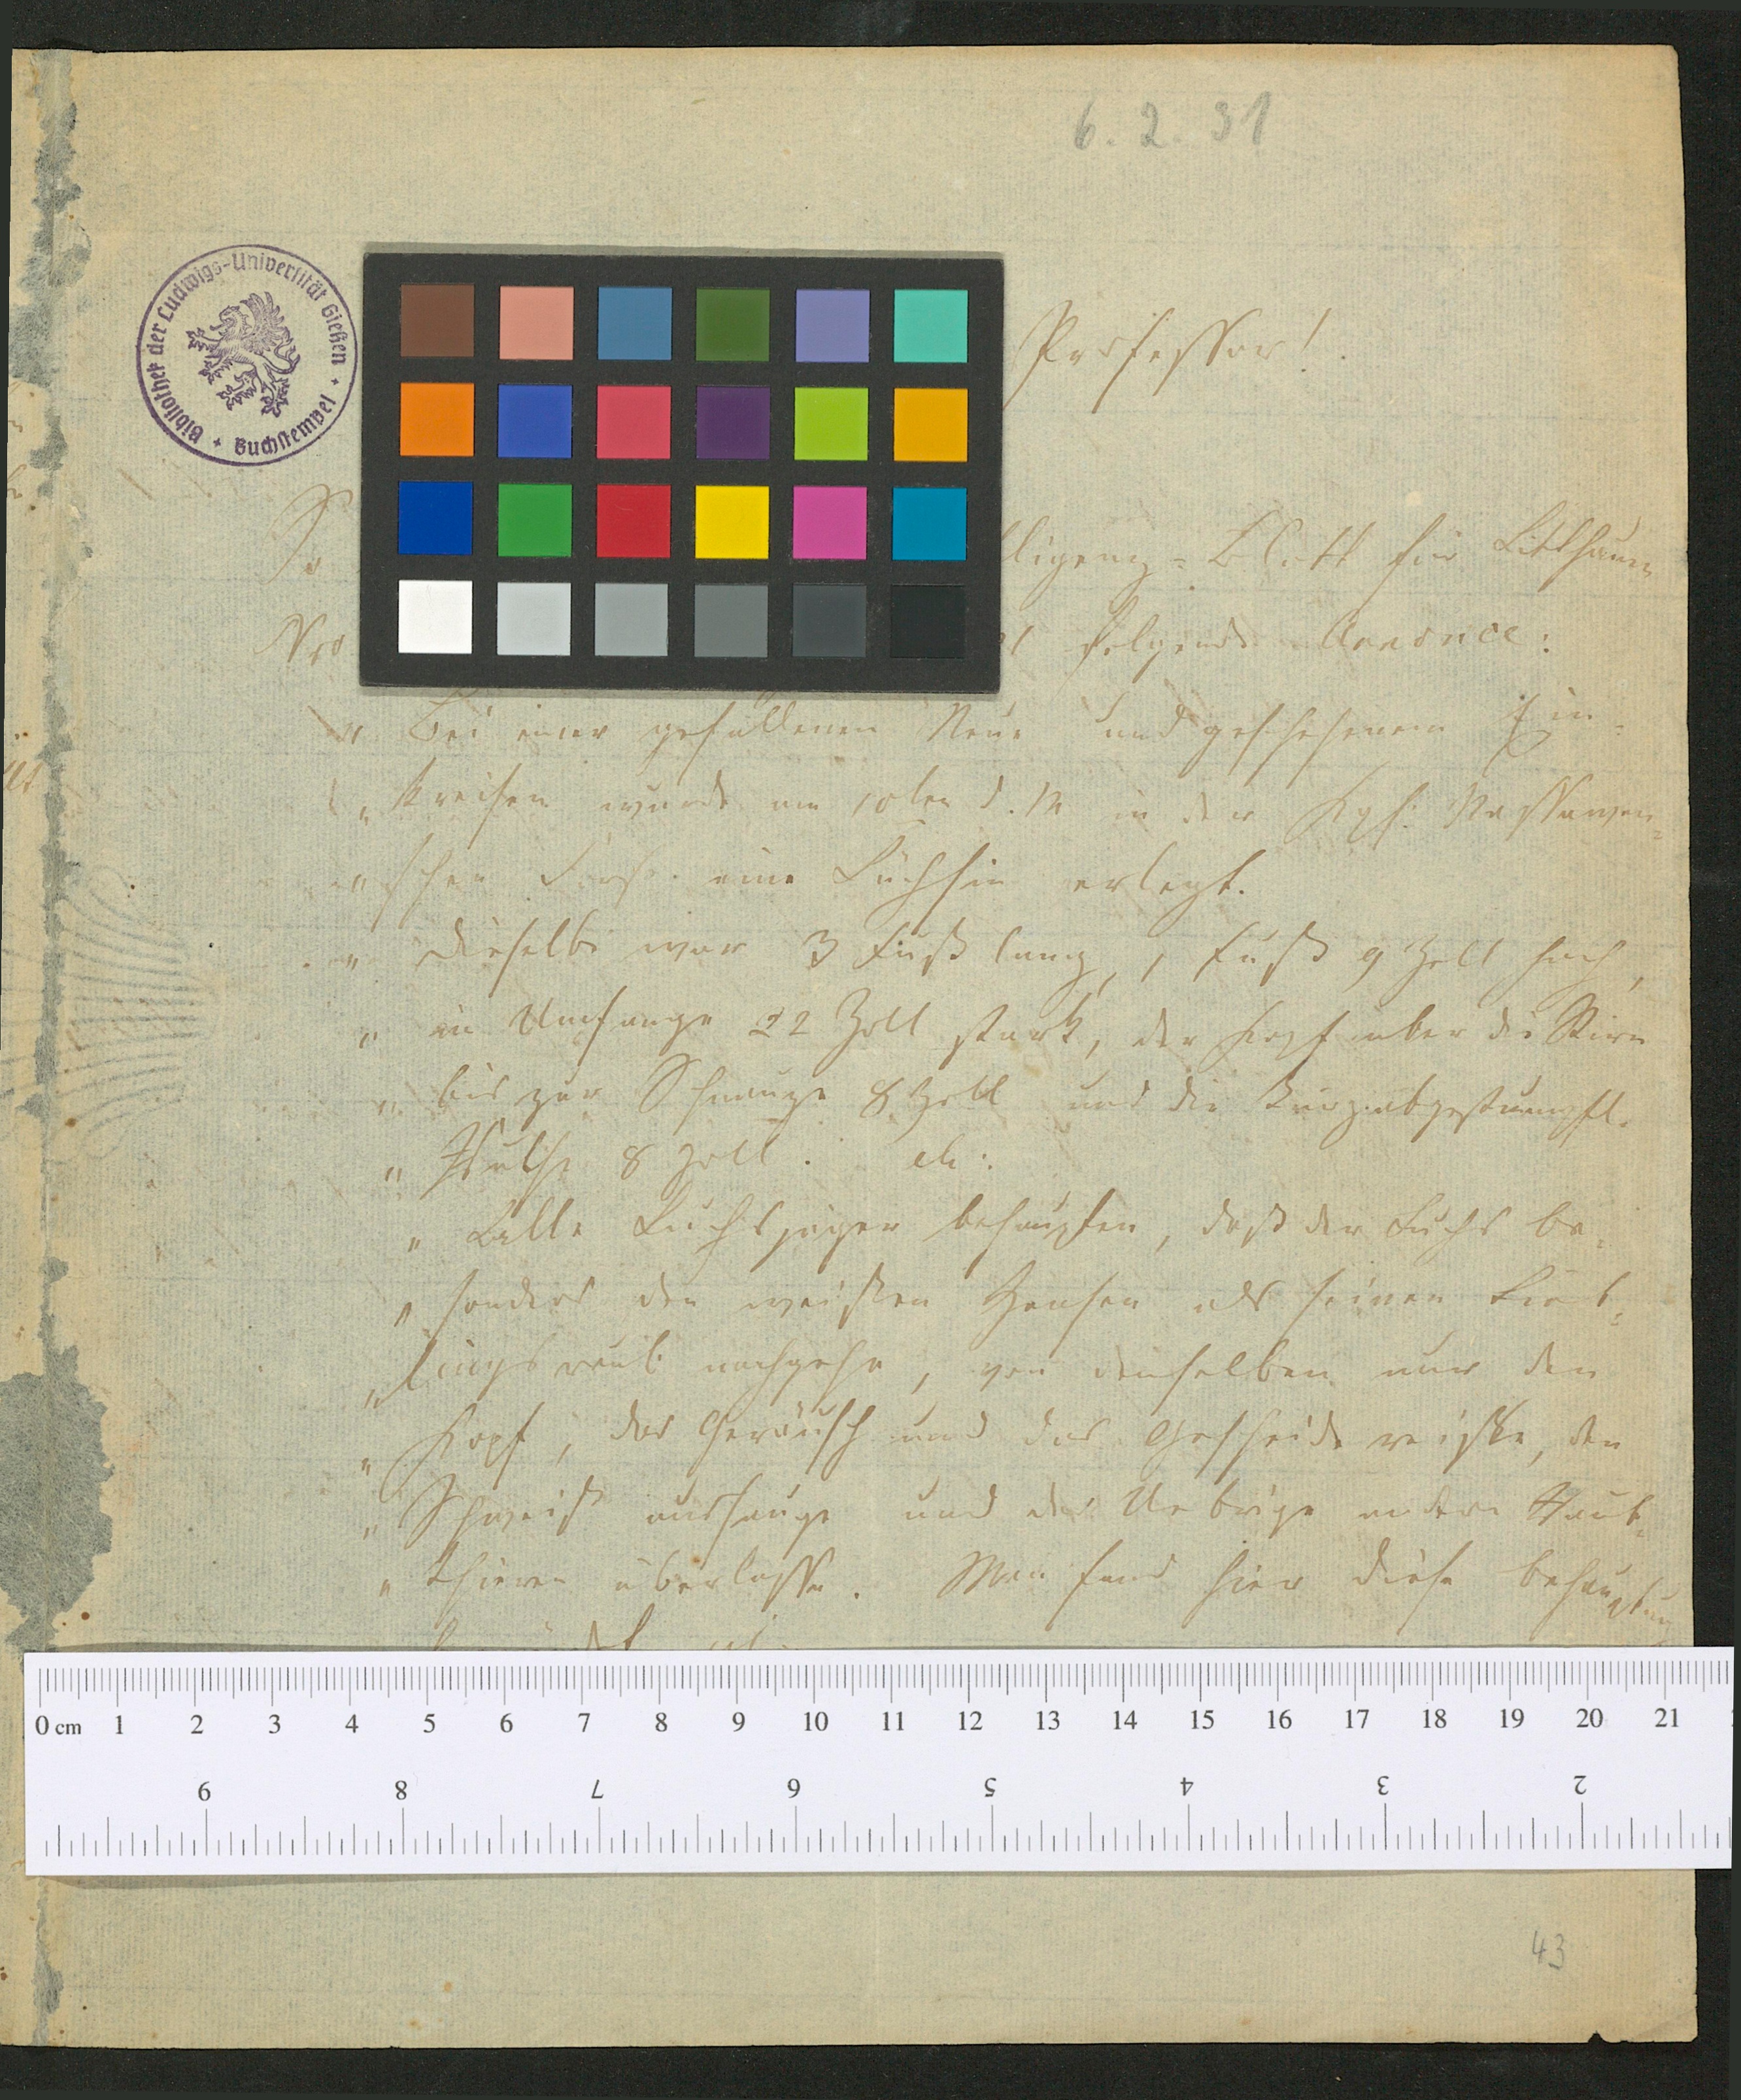 6. 2. 31
Bibliothek der Ludwigs-Universität Gießen
Buchstempel
Professor!
In lligenz-Blatt für Litthauen
Nro folgende Annonce:
" Bei einer gefallenen Neue und geschehenem Ein-
" kreisen wurde am 10ten d. M in der Kgl. Nassawen-
" schen Forst eine Lüchsin erlegt.
" Dieselbe war 3 Fuß lang, 1 Fuß 9 Zoll hoch,
" im Umfange 22 Zoll stark, der Kopf über die Stirn
" bis zur Schnauze 8 Zoll und die kurz abgestumpft.
" Ruthe 8 Zoll. etc:
" Alle Luchsjäger behaupten, daß der Luchs be-
" sonders den weißen Haasen als seinen Lieb-
" lingsraub nachgehe, von denselben nur den
" Kopf, das Geräusch und das Gescheide reiße, den
" Schweiß aussauge und das Uebrige andern Raub-
" thieren überlasse. Man fand hier diese Behauptung
0 cm 1 2 3 4 5 6 7 8 9 10 11 12 13 14 15 16 17 18 19 20 21
9 8 7 6 5 4 3 2
43